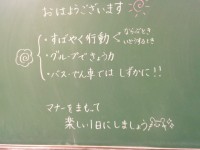 おはようございます
・すばやく行動
ならぶとき
いどうするとき
・グループできょう力
・バス・でん車では しずかに!!
マナーをまもって
楽しい1日にしましょう